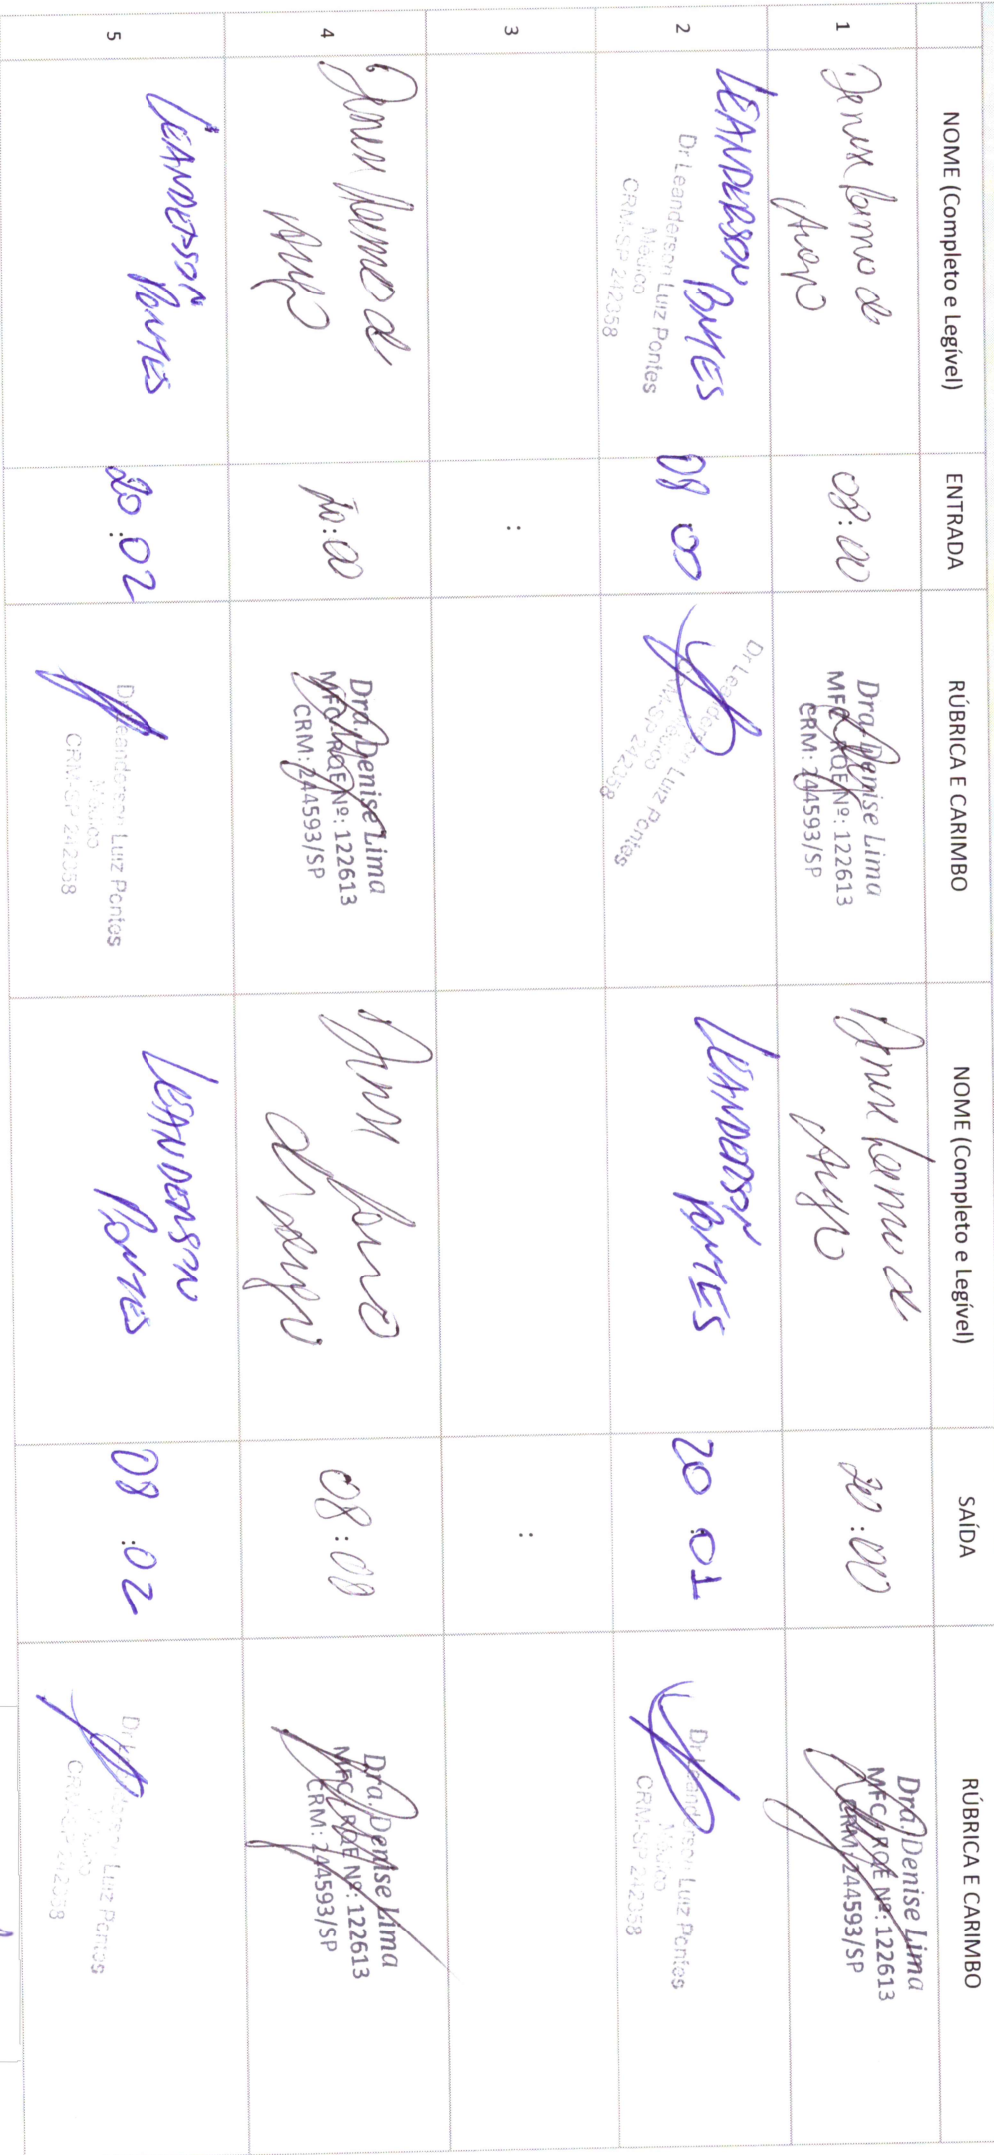 NOME (Completo e Legível) ENTRADA RÚBRICA E CARIMBO NOME (Completo e Legível) SAÍDA RÚBRICA E CARIMBO
1
Denise
08:00
Dra. Denise Lima
MFC RQE Nº: 122613
CRM: 244593/SP
20:00
Dra. Denise Lima
MFC RQE Nº: 122613
CRM: 244593/SP
2
LEANDERSON PONTES
Dr Leanderson Luiz Pontes
Médico
CRM-SP 242358
08 00
Dr Leanderson Luiz Pontes
Médico
CRM-SP 242358
LEANDERSON
PONTES
20:01
Dr Leanderson Luiz Pontes
Médico
CRM-SP 242358
3
:
:
4
20:00
Dra. Denise Lima
MFC RQE Nº: 122613
CRM: 244593/SP
08:00
Dra. Denise Lima
MFC RQE Nº: 122613
CRM: 244593/SP
5
LEANDERSON
PONTES
20:02
Dr Leanderson Luiz Pontes
Médico
CRM-SP 242358
LEANDERSON
PONTES
08:02
Dr Leanderson Luiz Pontes
Médico
CRM-SP 242358